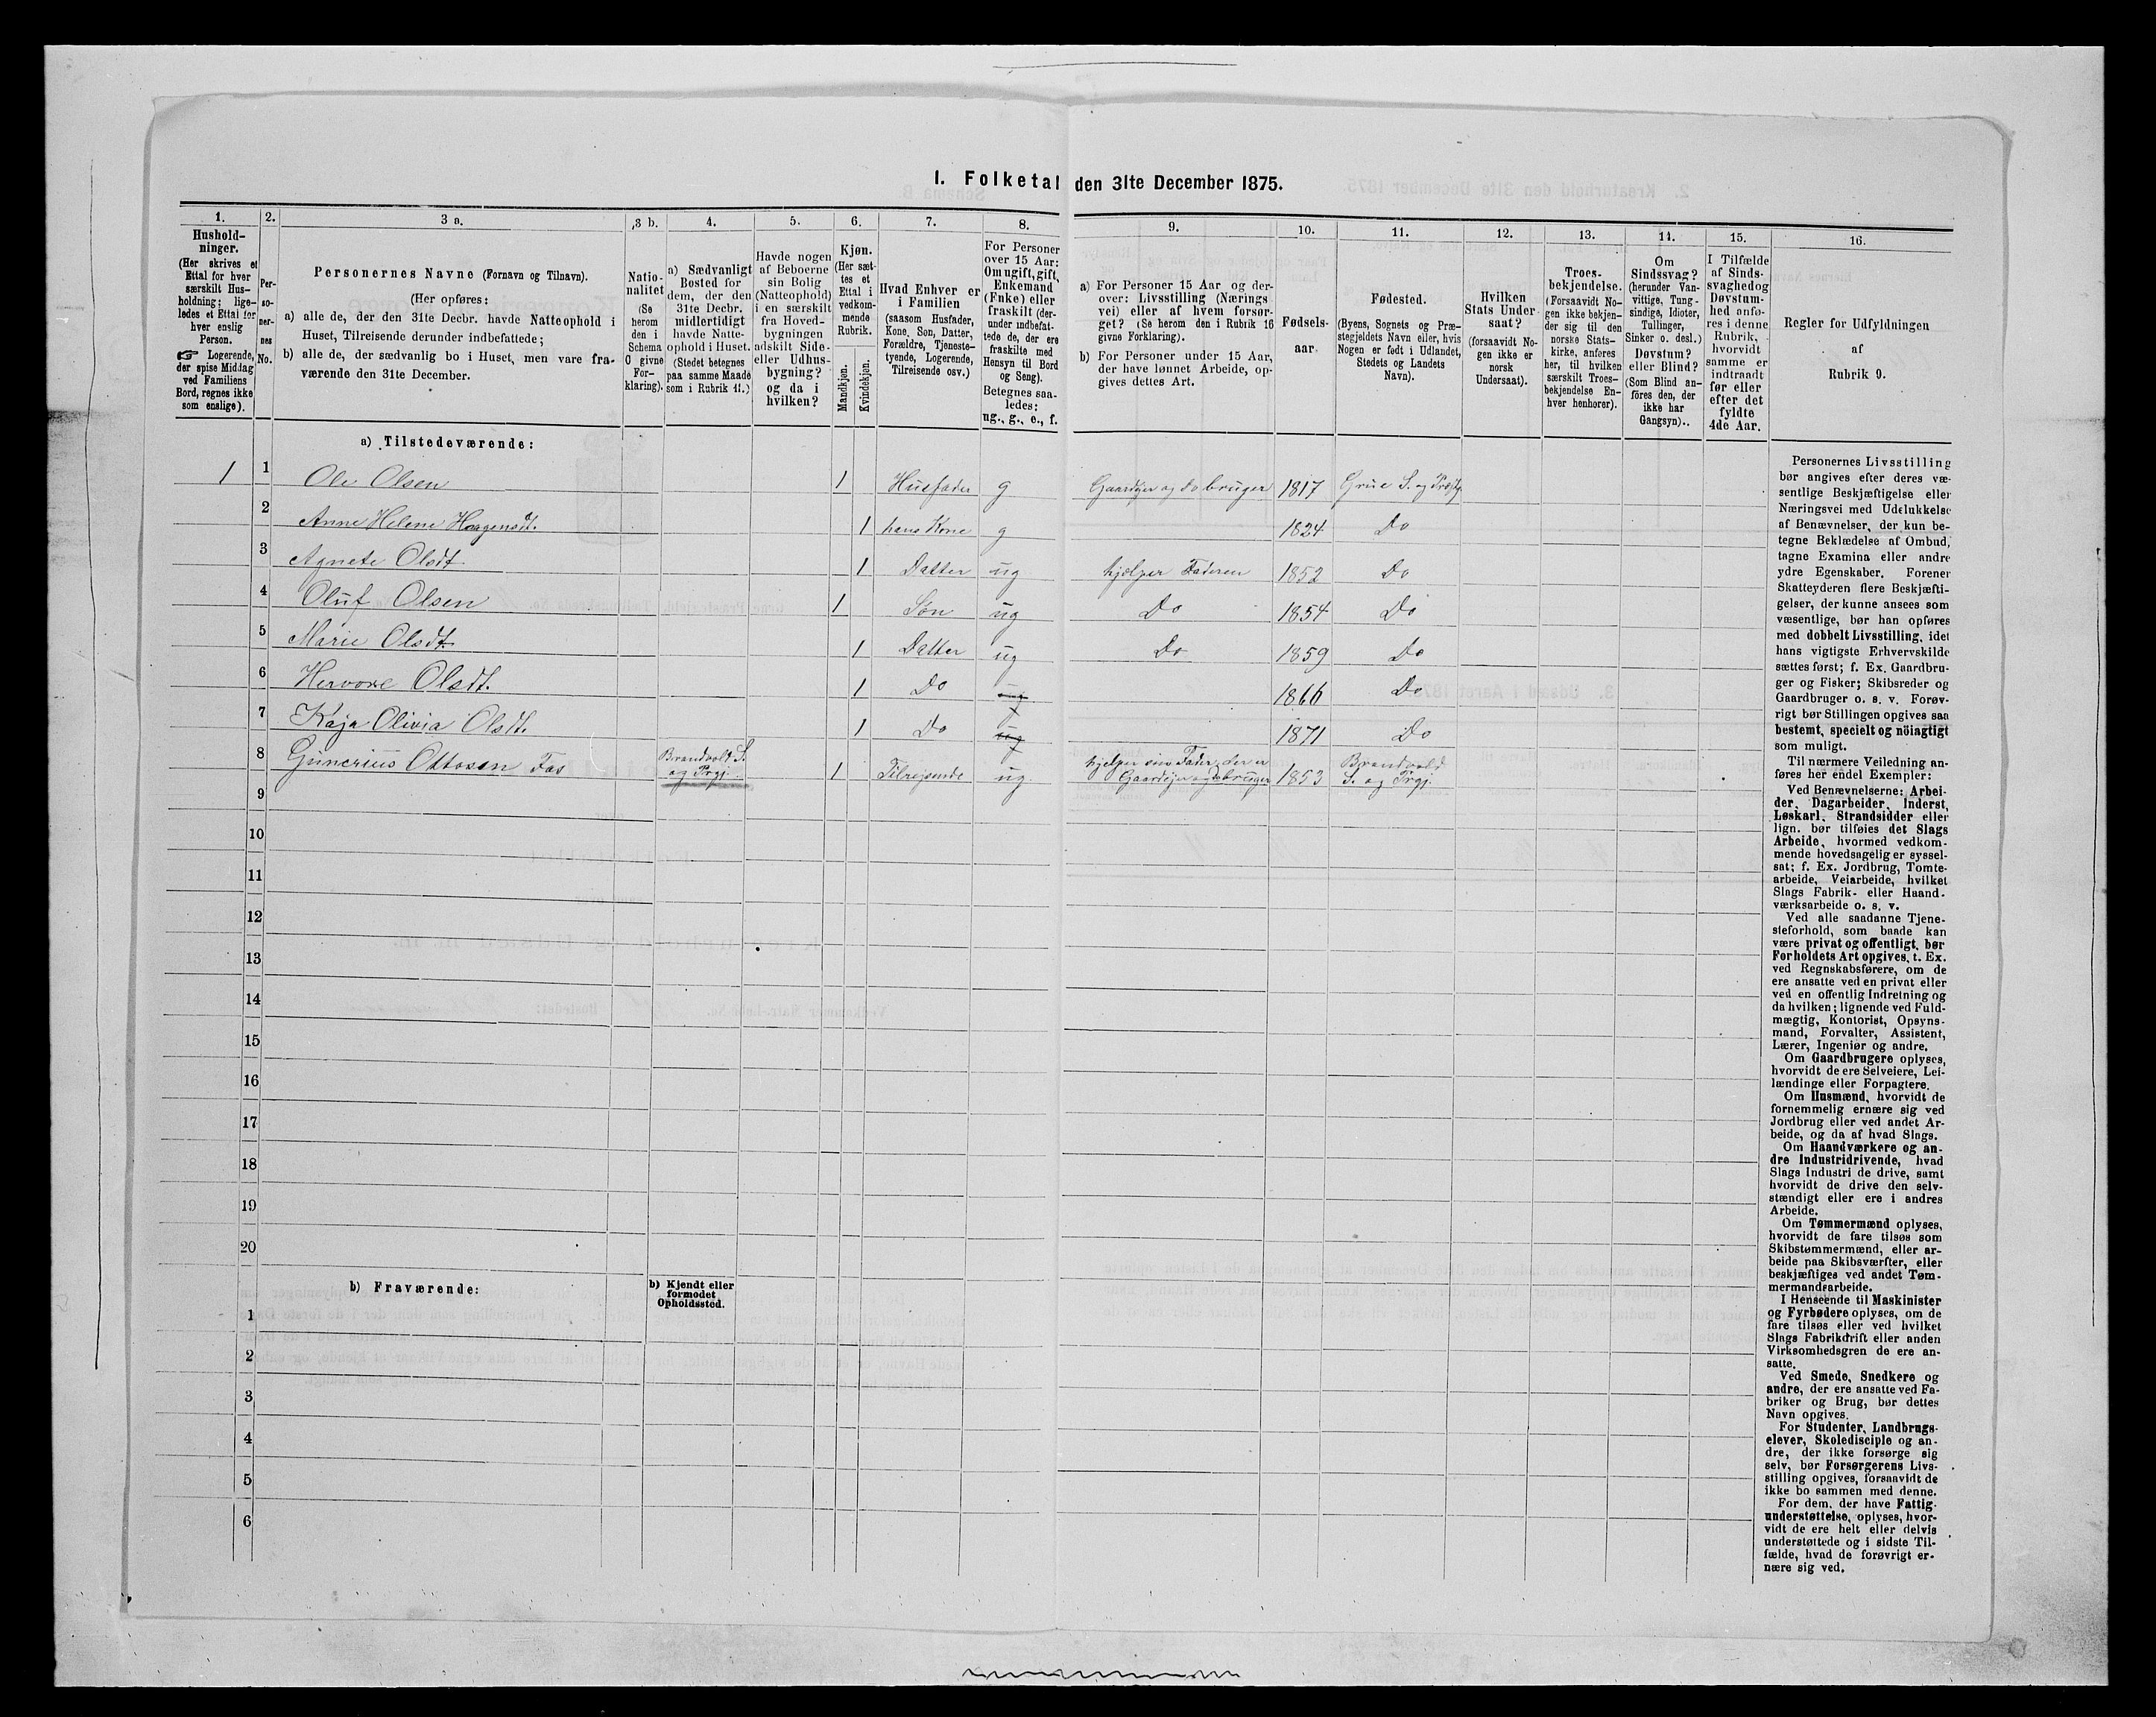 I. Folketal den 31te December 1875.
1. 2. 3 a. 3 b. 4. 5. 6. 7. 8. 9. 10. 11. 12. 13. 14. 15. 16.
Hushold-
ninger.
(Her skrives et
Ettal for hver
særskilt Hus-
holdning; lige-
ledes et Ettal for
hver enslig
Person.
☞ Logerende,
der spise Middag
ved Familiens
Bord, regnes ikke
som enslige).
Per-
so-
ner-
nes
No.
Personernes Navne (Fornavn og Tilnavn).
(Her opføres:
a) alle de, der den 31te Decbr. havde Natteophold i
Huset, Tilreisende derunder indbefattede;
b) alle de, der sædvanlig bo i Huset, men vare fra-
værende den 31te December.
Natio-
nalitet
(Se
herom
den i
Schema
O givne
For-
klaring).
a) Sædvanligt
Bosted for
dem, der den
31te Decbr.
midlertidigt
havde Natte-
ophold i Huset.
(Stedet betegnes
paa samme Maade
som i Rubrik 11.)
Havde nogen
af Beboerne
sin Bolig
(Natteophold)
i en særskilt
fra Hoved-
bygningen
adskilt Side-
eller Udhus-
bygning?
og da i
hvilken?
Kjøn.
(Her sæt-
tes et
Ettal i
vedkom-
mende
Rubrik.
Mandkjøn.
Kvindekjøn.
Hvad Enhver er
i Familien
(saasom Husfader,
Kone, Søn, Datter,
Forældre, Tjeneste-
tyende, Logerende,
Tilreisende osv.)
For Personer
over 15 Aar:
Om ugift, gift,
Enkemand
(Enke) eller
fraskilt (der-
under indbefat-
tede de, der ere
fraskilte med
Hensyn til Bord
og Seng).
Betegnes saa-
ledes:
ug., g., e., f.
a) For Personer 15 Aar og der-
over: Livsstilling (Nærings
vei) eller af hvem forsør-
get? (Se herom den i Rubrik 16
givne Forklaring).
b) For Personer under 15 Aar,
der have lønnet Arbeide, op-
gives dettes Art.
Fødsels-
aar.
Fødested.
(Byens, Sognets og Præ-
stegjeldets Navn eller, hvis
Nogen er født i Udlandet,
Stedets og Landets
Navn).
Hvilken
Stats Under
saat?
(forsaavidt No-
gen ikke er
norsk
Undersaat).
Troes-
bekjendelse.
(Forsaavidt No-
gen ikke bekjen-
der sig til den
norske Stats-
kirke, anføres
her, til hvilken
særskilt Troes-
bekjendelse En-
hver henhører).
Om
Sindssvag?
(herunder Van-
vittige, Tung-
sindige, Idioter,
Tullinger,
Sinker o. desl.)
Døvstum?
eller Blind?
(Som Blind an-
føres den, der
ikke har
Gangsyn)..
I Tilfælde
af Sinds-
svaghedog
Døvstum-
hed anfø-
res i denne
Rubrik,
hvorvidt
samme er
indtraadt
før eller
efter det
fyldte
4de Aar.
Regler for Udfyldningen
af
Rubrik 9.
a) Tilstedeværende:
1 1 Ole Olsen 1 Husfader g Gaardejer og do bruger 1817 Grue S. og Præstg.
2 Anne Helene Haagensdt. 1 hans Kone g 1824 Do
3 Agnete Olsdt. 1 Datter ug hjelper Faderen 1852 Do
4 Oluf Olsen 1 Søn ug Do 1854 Do
5 Marie Olsdt. 1 Datter ug Do 1859 Do
6 Olsdt. 1 Do ug 1866 Do
7 Kaja Olivia Olsdt. 1 Do ug 1871 Do
8 Gunerius Ottosen Fas Brandvold S. og Prgj. 1 Tilrejsende ug hjelper sin Fader, der er Gaardejer og do bruger 1853 Brandvold S. og Prgj.
9
10
11
12
13
14
15
16
17
18
19
20
b) Fraværende:
b) Kjendt eller
formodet
Opholdssted.
1
2
3
4
5
6
Personernes Livsstilling
bør angives efter deres væ-
sentlige Beskjæftigelse eller
Næringsvei med Udelukkelse
af Benævnelser, der kun be-
tegne Beklædelse af Ombud,
tagne Examina eller andre
ydre Egenskaber. Forener
Skatteyderen flere Beskjæfti-
gelser, der kunne ansees som
væsentlige, bør han opføres
med dobbelt Livsstilling, idet
hans vigtigste Erhvervskilde
sættes først; f. Ex. Gaardbru-
ger og Fisker; Skibsreder og
Gaardbruger o. s. v. Forøv-
rigt bør Stillingen opgives saa
bestemt, specielt og nöiagtigt
som muligt.
Til nærmere Veiledning an-
føres her endel Exempler:
Ved Benævnelserne: Arbei-
der, Dagarbeider, Inderst,
Løskarl, Strandsidder eller
lign. bør tilføies det Slags
Arbeide, hvormed vedkom-
mende hovedsagelig er syssel-
sat; f. Ex. Jordbrug, Tomte-
arbeide, Veiarbeide, hvilket
Slags Fabrik- eller Haand-
værksarbeide o. s. v.
Ved alle saadanne Tjene-
steforhold, som baade kan
være privat og offentligt, bør
Forholdets Art opgives, t. Ex.
ved Regnskabsførere, om de
ere ansatte ved en privat eller
ved en offentlig Indretning og
da hvilken; lignende ved Fuld-
mægtig, Kontorist, Opsyns-
mand, Forvalter, Assistent,
Lærer, Ingeniør og andre.
Om Gaardbrugere oplyses,
hvorvidt de ere Selveiere, Lei-
lændinge eller Forpagtere.
Om Husmænd, hvorvidt de
fornemmelig ernære sig ved
Jordbrug eller ved andet Ar-
beide, og da af hvad Slags.
Om Haandværkere og an-
dre Industridrivende, hvad
Slags Industri de drive, samt
hvorvidt de drive den selv-
stændigt eller ere i andres
Arbeide.
Om Tømmermænd oplyses,
hvorvidt de fare tilsøs som
Skibstømmermænd, eller ar-
beide paa Skibsværfter, eller
beskjæftiges ved andet Tøm-
mermandarbeide.
I Henseende til Maskinister
og Fyrbødere oplyses, om de
fare tilsøs eller ved hvilket
Slags Fabrikdrift eller anden
Virksomhedsgren de ere an-
satte.
Ved Smede, Snedkere og
andre, der ere ansatte ved Fa-
briker og Brug, bør dettes
Navn opgives.
For Studenter, Landbrugs-
elever, Skoledisciple og an-
dre, der ikke forsørge sig
selv, bør Forsørgerens Livs-
stilling opgives, forsaavidt de
ikke bo sammen med denne.
For dem, der have Fattig-
understøttelse, oplyses, hvor-
vidt de ere helt eller delvis
understøttede og i sidste Til-
fælde, hvad de forøvrigt er-
nære sig ved.